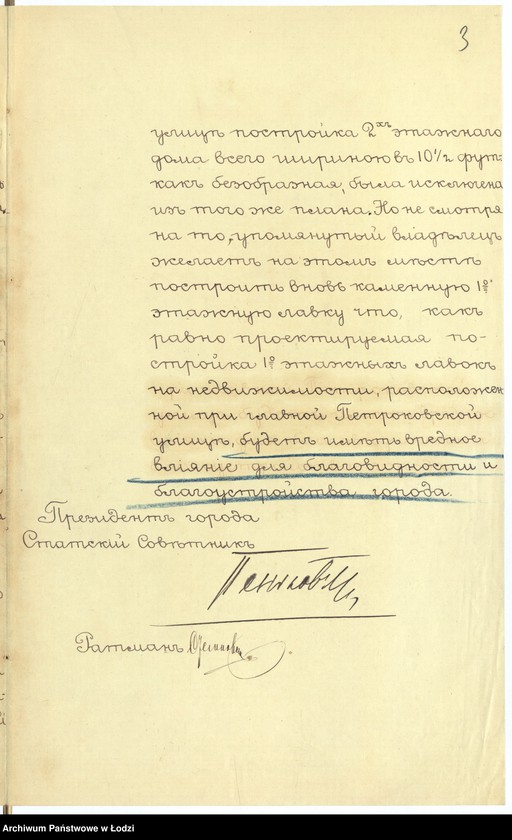 3
улицѣ постройка 2хъ этажнаго
дома всего шириною въ 10 1/2 фут:
какъ безобразная, была исключена
изъ того же плана. Но не смотря
на то, упомянутый владѣлецъ
желаетъ на этомъ мѣстѣ
построить вновь каменную 1о
этажную лавку что, какъ
равно проектируемая по-
стройка 1о этажныхъ лавокъ
на недвижимости, расположен
ной при главной Петроковской
улицѣ, будетъ имѣть вредное
вліяніе для благовидности и
благоустройства города.
Президентъ города
Статскій Совѣтникъ
Ратманъ
Archiwum Państwowe w Łodzi